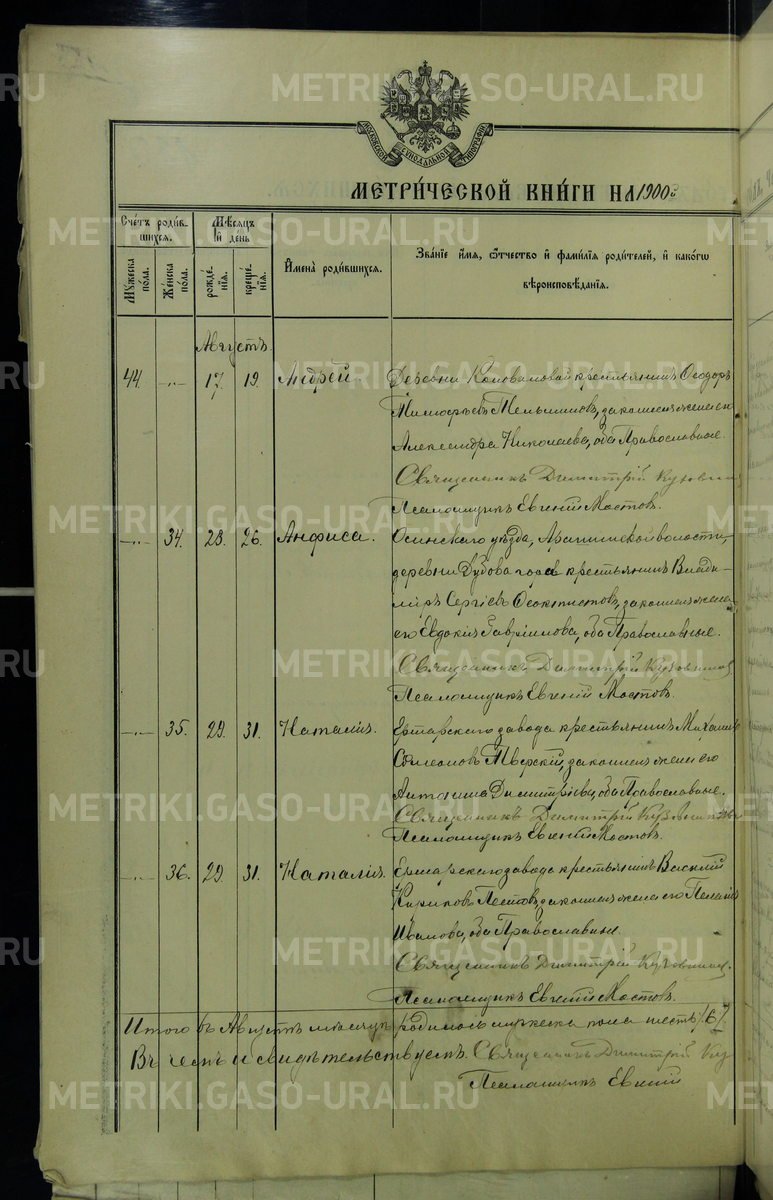 МОСКОВСКОЙ СѴНОДАЛЬНОЙ ТИПОГРАФІИ
МЕТРИ́ЧЕСКОЙ КНИ́ГИ НА 1900 г.
Сче́тъ роди́в-
шихся.
Мѣ́сяцъ
и҆ день
Мꙋ́жеска по́ла.
Же́нска по́ла.
рожде́-
нія.
креще́-
нія.
И҆мена̀ роди́вшихся.
Зва́ніе и҆́мя, ѻ҆́тчество и҆ фами́лія роди́телей, и҆ како́гѡ
вѣроисповѣ́данія.
Августъ
44. —„— 17. 19. Андрей. Деревни Коноваловой крестьянинъ Ѳеодоръ
Мельниковъ, законная жена его
Александра Николаева, оба Православные.
Священникъ Димитрій
Псаломщикъ Евгеній Мостовъ.
—„— 34. 23. 26. Анфиса. Осинскаго уѣзда, волости,
деревни Дубова гора крестьянинъ Влади-
міръ Сергіевъ Ѳеоктистовъ, законная жена
его Евдокія Гавріилова, оба Православные.
Священникъ Димитрій
Псаломщикъ Евгеній Мостовъ.
—„— 35. 29. 31. Наталія. Ертарскаго завода крестьянинъ Михаилъ
Симеоновъ Тверскій, законная жена его
Антонина Димитріева, оба Православные.
Священникъ Димитрій
Псаломщикъ Евгеній Мостовъ.
—„— 36. 29. 31. Наталія. Ертарскаго завода крестьянинъ Василій
Кириковъ Пестовъ, законная жена его Пелагія
Иванова, оба Православные.
Священникъ Димитрій
Псаломщикъ Евгеній Мостовъ.
Итого въ Августѣ мѣсяцѣ родилось мужеска пола шесть /6/
Въ чемъ и свидѣтельствуемъ. Священникъ Димитрій
Псаломщикъ Евгеній
METRIKI.GASO-URAL.RU